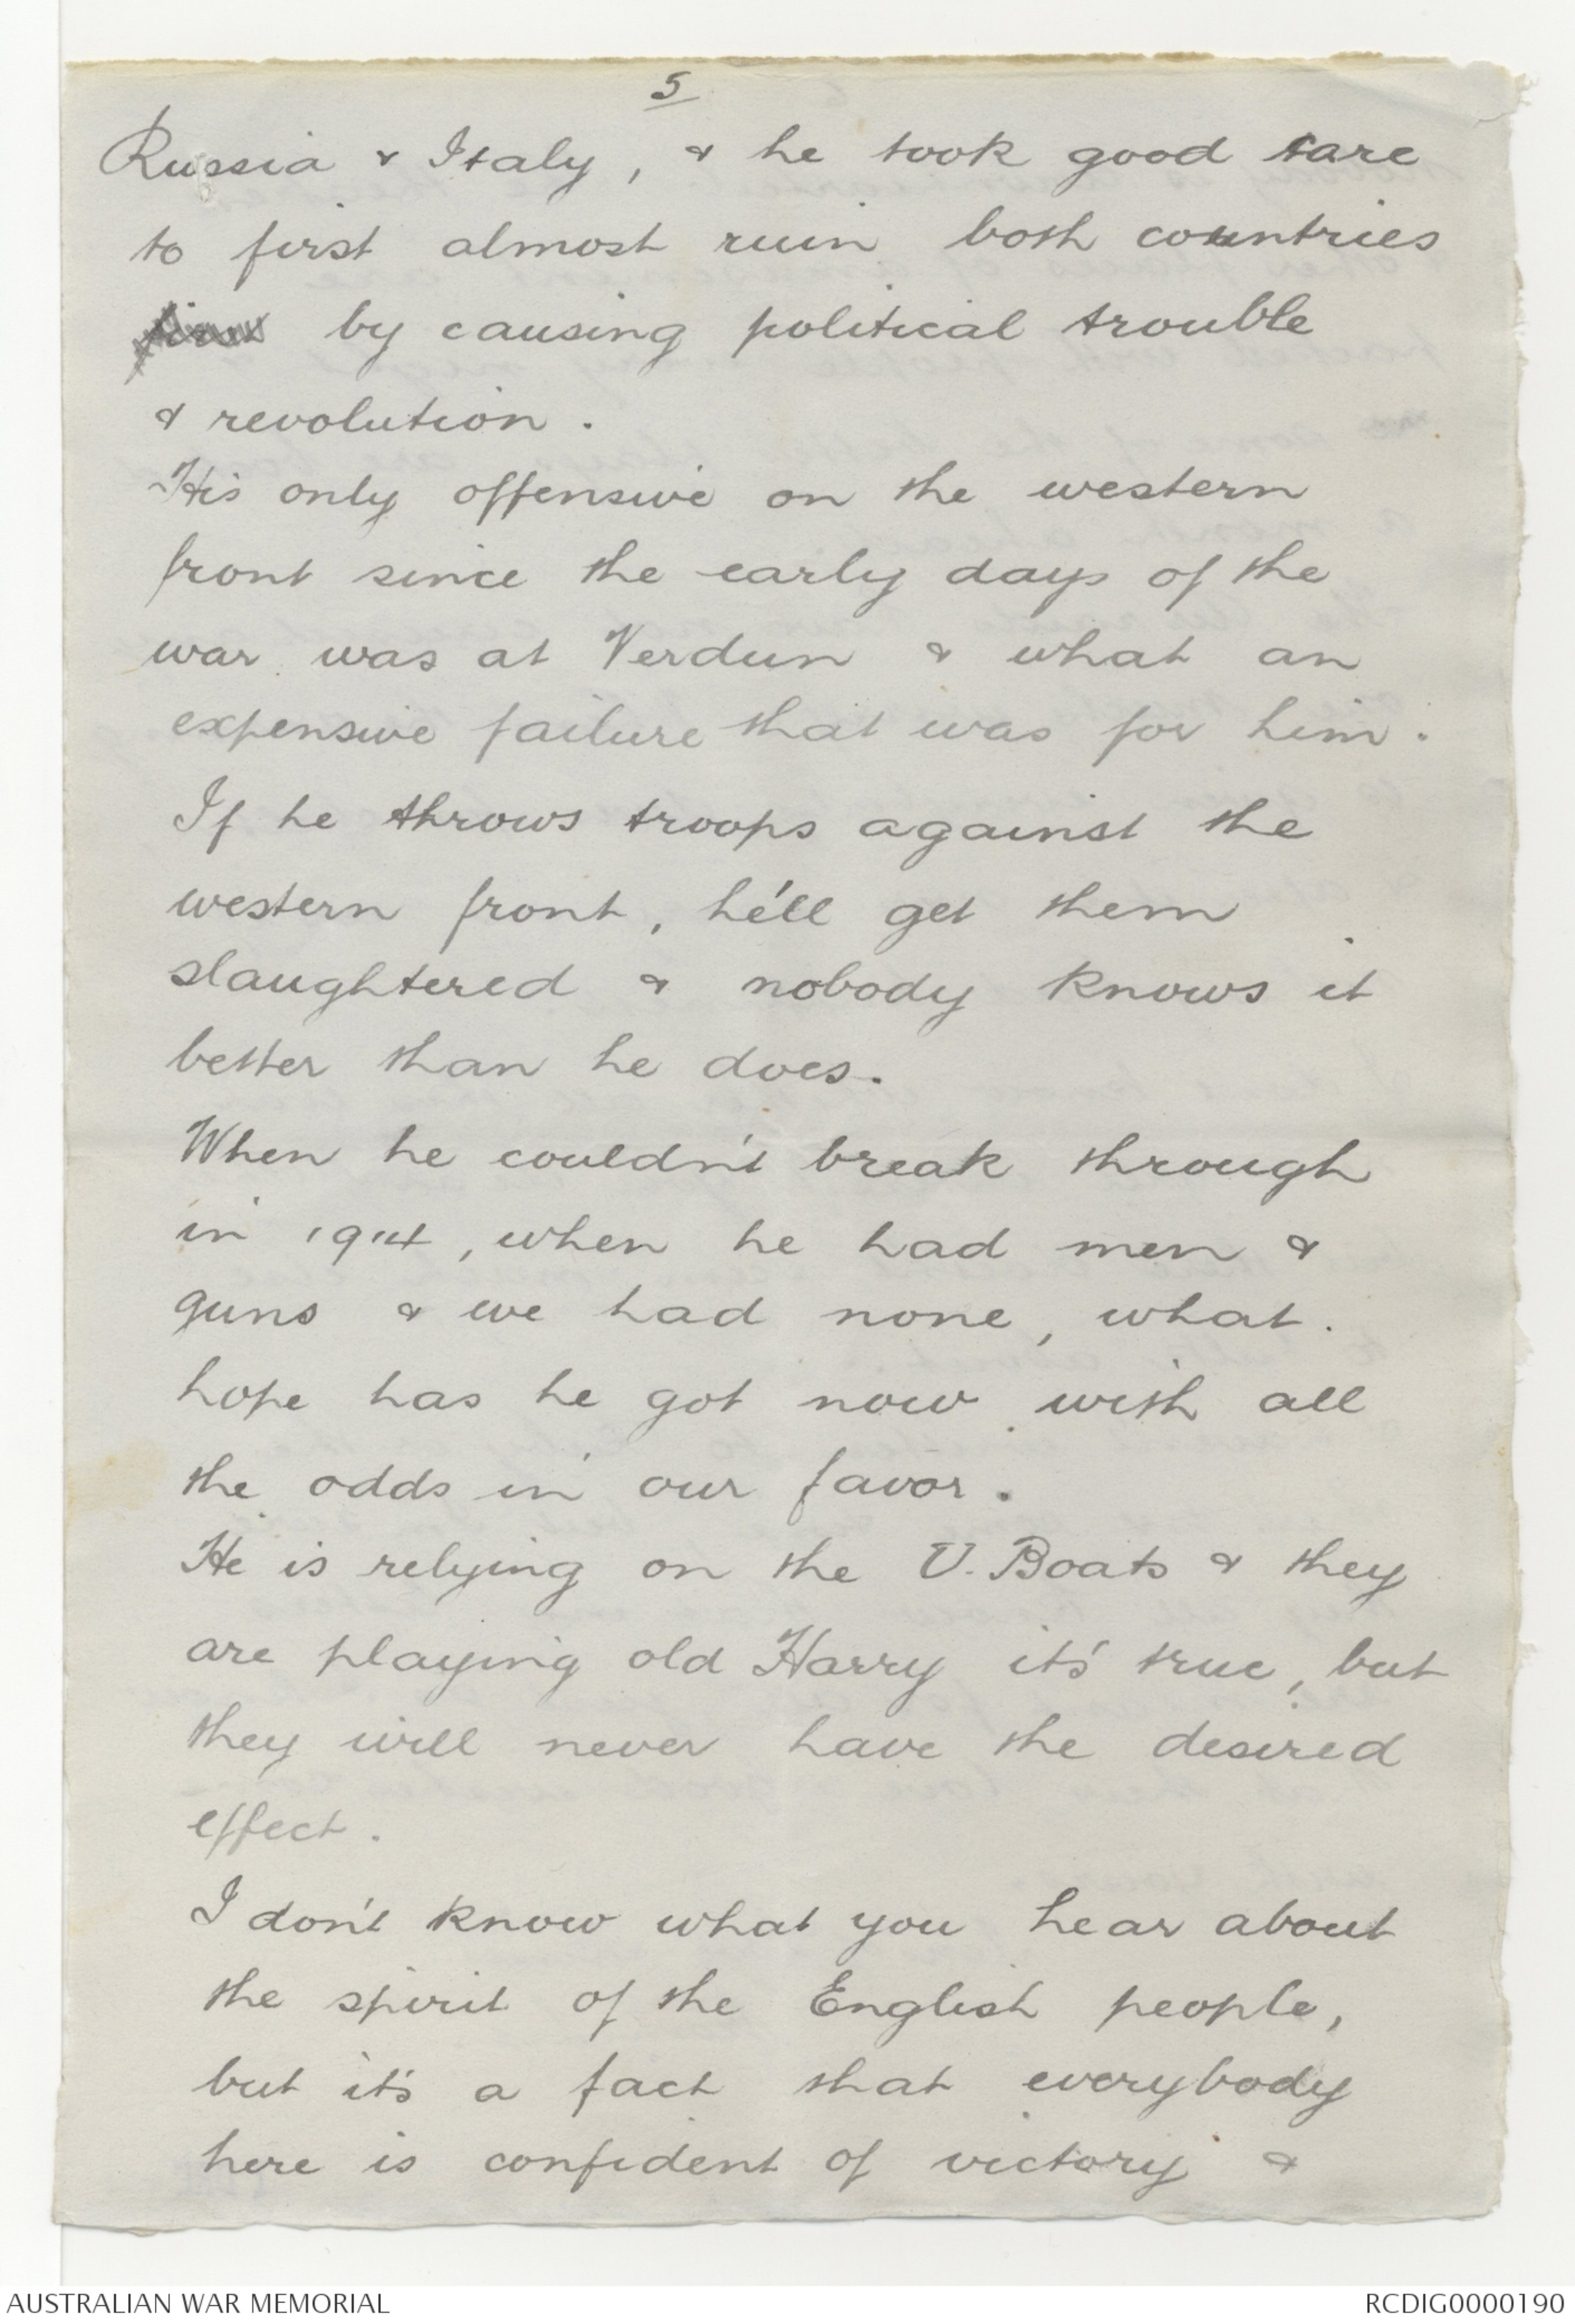 5
Russia & Italy, & he took good care
to first almost ruin both countries
by causing political trouble
& revolution.
His only offensive on the western
front since the early days of the
war was at Verdun & what an
expensive failure that was for him.
If he throws troops against the
western front, he'll get them
slaughtered & nobody knows it
better than he does.
When he couldn't break through
in 1914, when he had men &
guns & we had none, what.
hope has he got now with all
the odds in our favor.
He is relying on the U. Boats & they
are playing old Harry it's true, but
they will never have the desired
effect.
I don't know what you hear about
the spirit of the English people,
but it's a fact that everybody
here is confident of victory &
AUSTRALIAN WAR MEMORIAL
RCDIG0000190